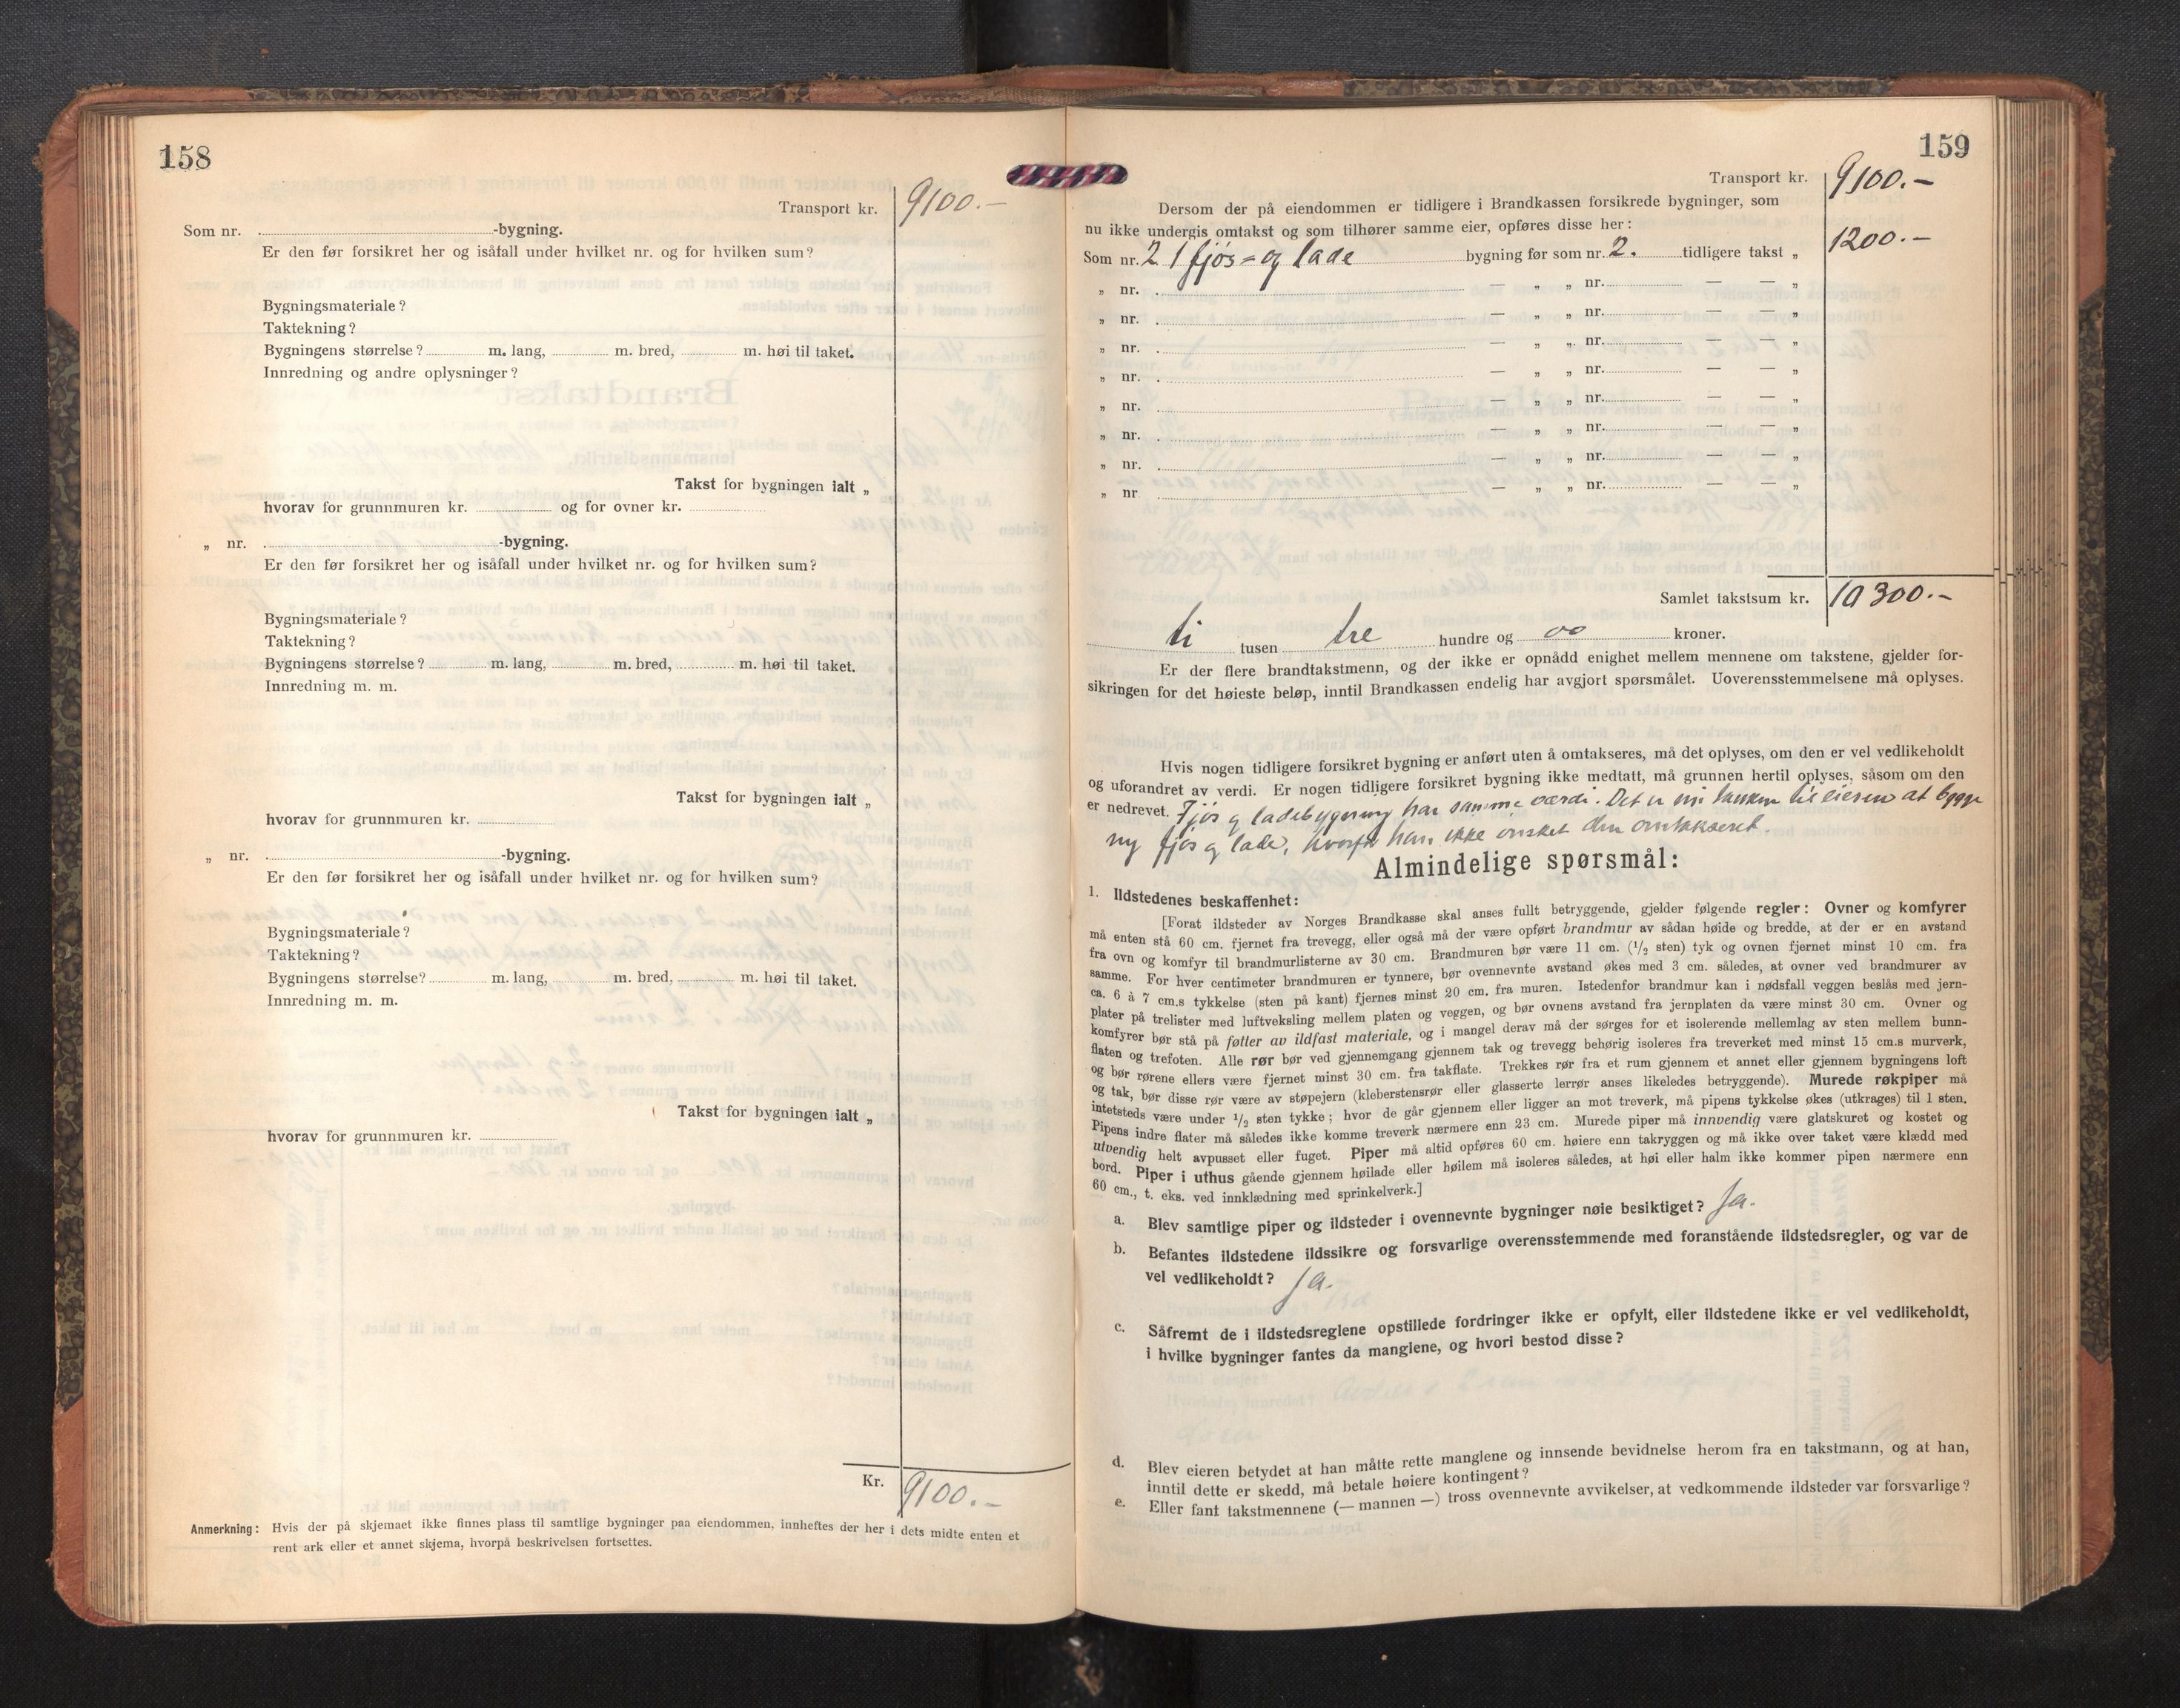 158
Transport kr. 9100.—
Som nr. -bygning.
Er den før forsikret her og isåfall under hvilket nr. og for hvilken sum?
Bygningsmateriale?
Taktekning?
Bygningens størrelse? m. lang, m. bred, m. høi til taket.
Innredning og andre oplysninger?
Takst for bygningen ialt „
hvorav for grunnmuren kr. og for ovner kr.
„ nr. -bygning.
Er den før forsikret her og isåfall under hvilket nr. og for hvilken sum?
Bygningsmateriale?
Taktekning?
Bygningens størrelse? m. lang, m. bred, m. høi til taket.
Innredning m. m.
Takst for bygningen ialt „
hvorav for grunnmuren kr.
„ nr. -bygning.
Er den før forsikret her og isåfall under hvilket nr. og for hvilken sum?
Bygningsmateriale?
Taktekning?
Bygningens størrelse? m. lang, m. bred, m. høi til taket.
Innredning m. m.
Takst for bygningen ialt „
hvorav for grunnmuren kr.
Kr. 9100.—
Anmerkning: Hvis der på skjemaet ikke finnes plass til samtlige bygninger paa eiendommen, innheftes der her i dets midte enten et
rent ark eller et annet skjema, hvorpå beskrivelsen fortsettes.
159
Transport kr. 9100.—
Dersom der på eiendommen er tidligere i Brandkassen forsikrede bygninger, som
nu ikke undergis omtakst og som tilhører samme eier, opføres disse her:
Som nr. 2 1 fjøs= og lade bygning før som nr. 2. tidligere takst „ 1200.—
„ nr. — „ „ nr. — — „
„ nr. — „ „ nr. — — „
„ nr. — „ „ nr. — — „
„ nr. — „ „ nr. — — „
„ nr. — „ „ nr. — — „
„ nr. — „ „ nr. — — „
„ nr. — „ „ nr. — — „
„ nr — „ „ nr. — — „
Samlet takstsum kr. 10300.—
ti tusen tre hundre og oo kroner.
Er der flere brandtakstmenn, og der ikke er opnådd enighet mellem mennene om takstene, gjelder for-
sikringen for det høieste beløp, inntil Brandkassen endelig har avgjort spørsmålet. Uoverensstemmelsene må oplyses.
Hvis nogen tidligere forsikret bygning er anført uten å omtakseres, må det oplyses, om den er vel vedlikeholdt
og uforandret av verdi. Er nogen tidligere forsikret bygning ikke medtatt, må grunnen hertil oplyses, såsom om den
er nedrevet. Fjøs og ladebygning har samme værdi. Det er tanken til eieren at bygge
ny fjøs og lade, hvorfor han ikke ønsket den omtakseret.
Almindelige spørsmål:
1. Ildstedenes beskaffenhet:
[Forat ildsteder av Norges Brandkasse skal anses fullt betryggende, gjelder følgende regler: Ovner og komfyrer
må enten stå 60 cm. fjernet fra trevegg, eller også må der være opført brandmur av sådan høide og bredde, at der er en avstand
fra ovn og komfyr til brandmurlisterne av 30 cm. Brandmuren bør være 11 cm. (1/2 sten) tyk og ovnen fjernet minst 10 cm. fra
samme. For hver centimeter brandmuren er tynnere, bør ovennevnte avstand økes med 3 cm. således, at ovner ved brandmurer av
ca. 6 à 7 cm.s tykkelse (sten på kant) fjernes minst 20 cm. fra muren. Istedenfor brandmur kan i nødsfall veggen beslås med jern-
plater på trelister med luftveksling mellem platen og veggen, og bør ovnens avstand fra jernplaten da være minst 30 cm. Ovner og
komfyrer bør stå på føtter av ildfast materiale, og i mangel derav må der sørges for et isolerende mellemlag av sten mellem bunn-
flaten og trefoten. Alle rør bør ved gjennemgang gjennem tak og trevegg behørig isoleres fra treverket med minst 15 cm.s murverk,
og bør rørene ellers være fjernet minst 30 cm. fra takflate. Trekkes rør fra et rum gjennem et annet eller gjennem bygningens loft
og tak, bør disse rør være av støpejern (kleberstensrør eller glasserte lerrør anses likeledes betryggende). Murede røkpiper må
intetsteds være under 1/2 sten tykke; hvor de går gjennem eller ligger an mot treverk, må pipens tykkelse økes (utkrages) til 1 sten.
Pipens indre flater må således ikke komme treverk nærmere enn 23 cm. Murede piper må innvendig være glatskuret og kostet og
utvendig helt avpusset eller fuget. Piper må altid opføres 60 cm. høiere enn takryggen og må ikke over taket være klædd med
bord. Piper i uthus gående gjennem høilade eller høilem må isoleres således, at høi eller halm ikke kommer pipen nærmere enn
60 cm., t. eks. ved innklædning med sprinkelverk.]
a. Blev samtlige piper og ildsteder i ovennevnte bygninger nøie besiktiget? Ja.
b. Befantes ildstedene ildssikre og forsvarlige overensstemmende med foranstående ildstedsregler, og var de
vel vedlikeholdt? Ja.
c. Såfremt de i ildstedsreglene opstillede fordringer ikke er opfylt, eller ildstedene ikke er vel vedlikeholdt,
i hvilke bygninger fantes da manglene, og hvori bestod disse?
d. Blev eieren betydet at han måtte rette manglene og innsende bevidnelse herom fra en takstmann, og at han,
inntil dette er skedd, må betale høiere kontingent?
e. Eller fant takstmennene (— mannen —) tross ovennevnte avvikelser, at vedkommende ildsteder var forsvarlige?